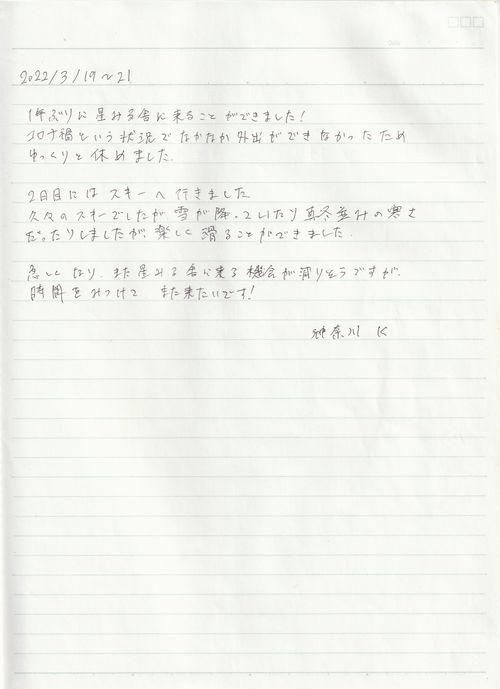 Date
2022/3/19~21
1年ぶりに星みる舎に来ることができました!
コロナ禍という状況でなかなか外出ができなかったため
ゆっくりと休めました.
2日目にはスキーへ行きました
久々のスキーでしたが、雪が降っていたり真冬並みの寒さ
だったりしましたが、楽しく滑ることができました.
忙しくなり、また星みる舎に来る機会が減りそうですが、
時間をみつけて また来たいです!
神奈川 K